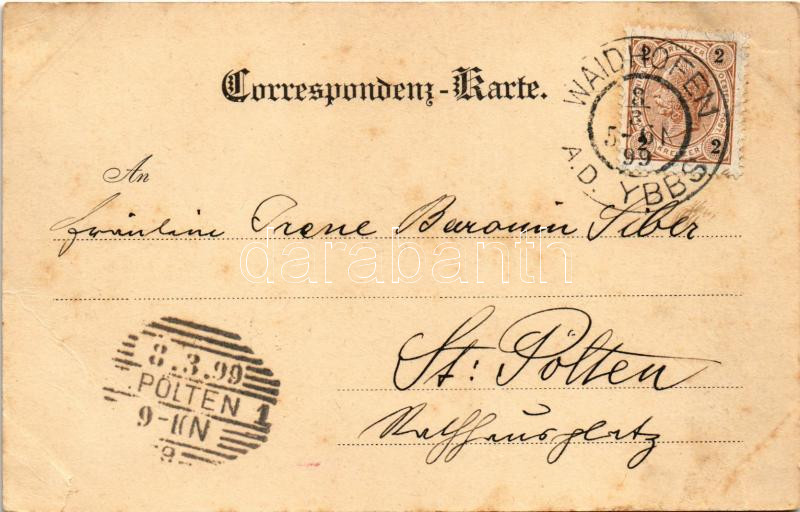 Correspondenz-Karte.
2 KREUZER 2
WAIDHOFEN
8
3
5-6N
99
A.D. YBBS
2 KREUZER 2
An
Fräulein Irene Baronin Siber
darabanth
St. Pölten
Rathhausplatz
8.3.99
PÖLTEN 1
9-10N
9